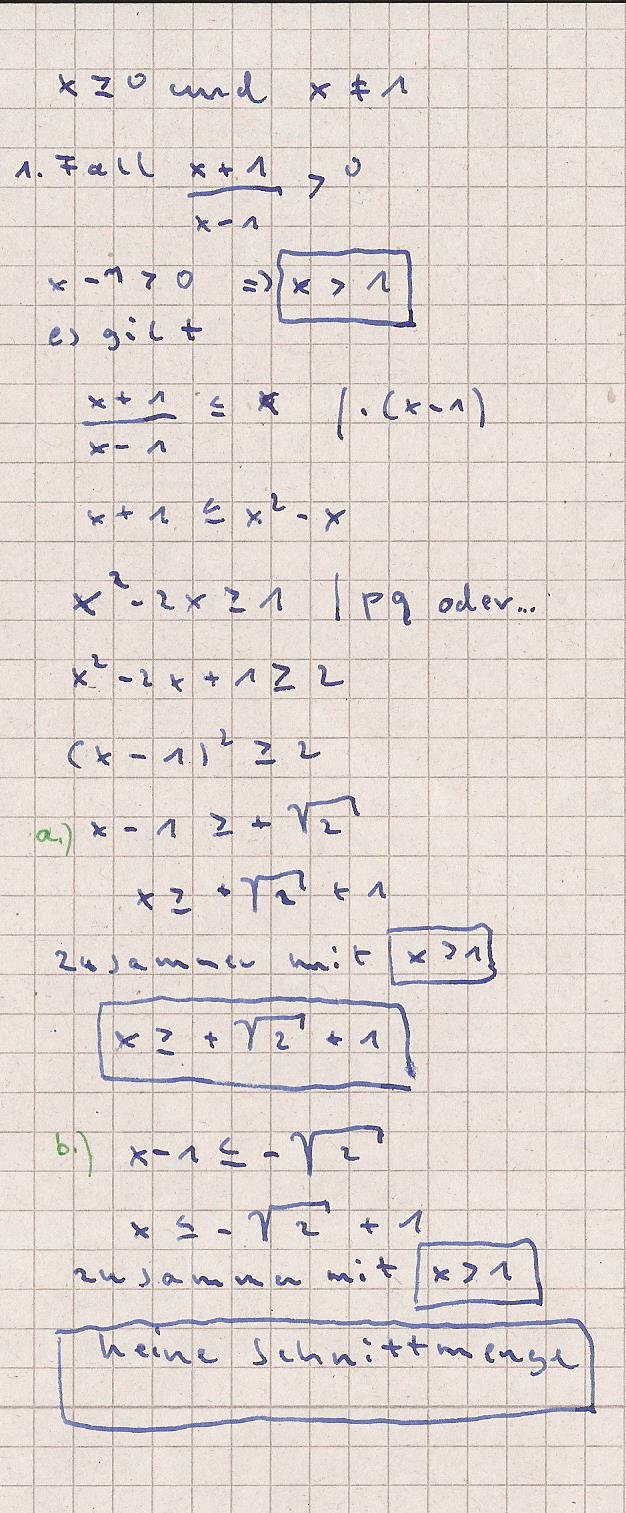 x ≥ 0 und x ≠ 1
1. Fall (x+1)/(x-1) > 0
x - 1 > 0 => x > 1
es gilt
(x+1)/(x-1) ≤ x | · (x-1)
x + 1 ≤ x² - x
x² - 2x ≥ 1 | pq oder...
x² - 2x + 1 ≥ 2
(x - 1)² ≥ 2
a.) x - 1 ≥ + √2
x ≥ + √2 + 1
zusammen mit x > 1
x ≥ + √2 + 1
b.) x - 1 ≤ - √2
x ≤ - √2 + 1
zusammen mit x > 1
keine Schnittmenge